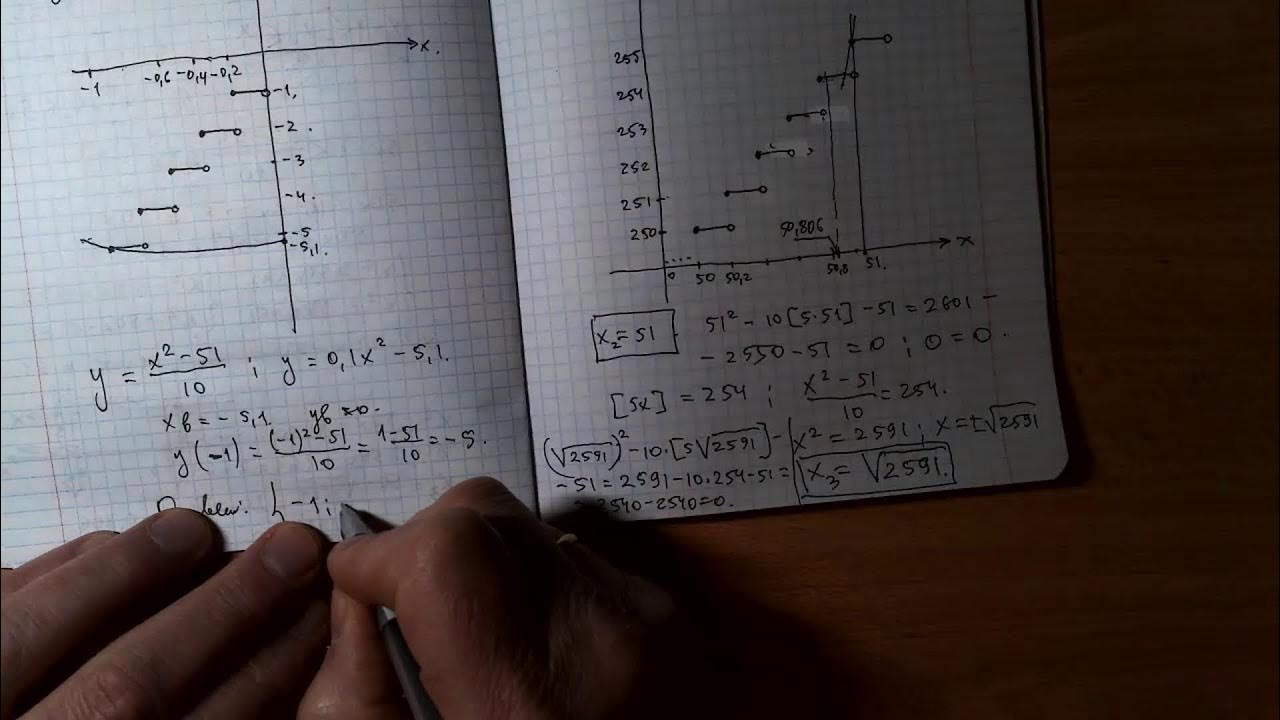 x.
-1 -0,6 -0,4 -0,2
-1,
-2.
-3
-4.
-5
-5,1.
y = (x² - 51)/10 ; y = 0,1x² - 5,1.
xв = -5,1. yв = 0.
y(-1) = ((-1)² - 51)/10 = (1 - 51)/10 = -5.
{-1;
255
254
253
252
251
250
50,806
x
0 50 50,2 50,8 51.
x₂ = 51
51² - 10[5·51] - 51 = 2601 -
- 2550 - 51 = 0 ; 0 = 0.
[5x] = 254 ; (x² - 51)/10 = 254.
(√2591)² - 10·[5√2591] -
x² = 2591 ; x = ±√2591
- 51 = 2591 - 10·254 - 51 =
x₃ = √2591.
2540 - 2540 = 0.